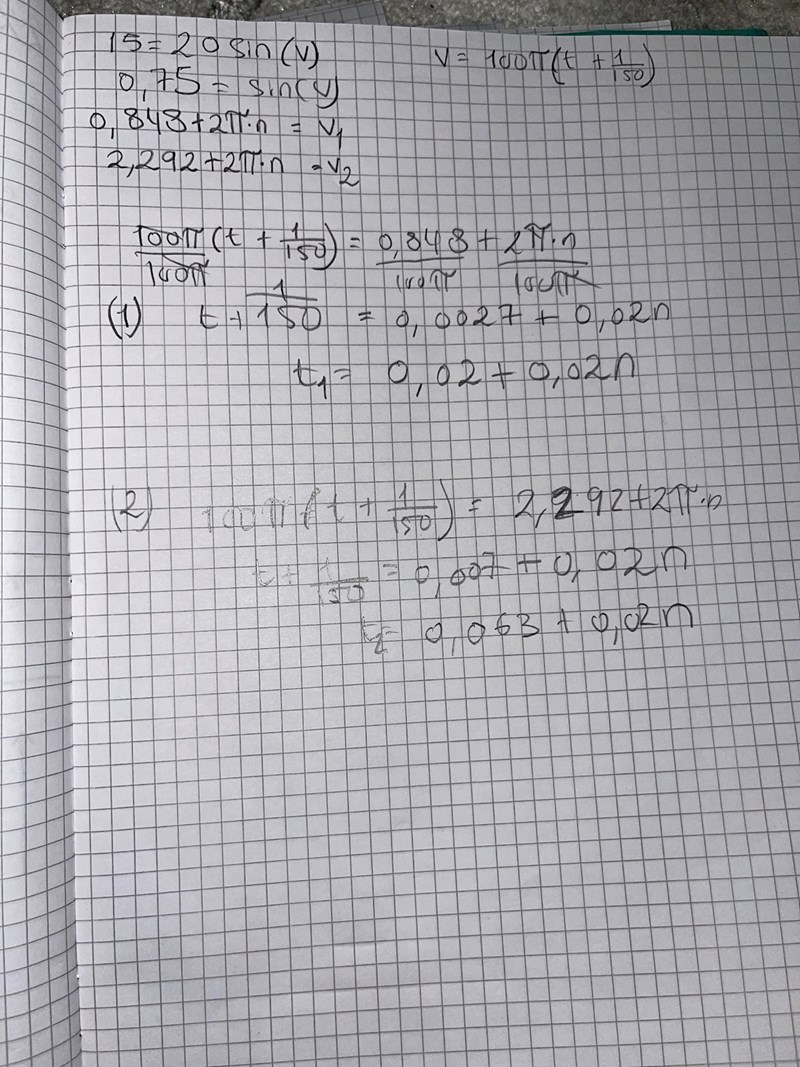 15 = 20 sin(v) v = 100π(t + 1/150)
0,75 = sin(v)
0,848 + 2π·n = v₁
2,292 + 2π·n = v₂
100π/100π (t + 1/150) = 0,848/100π + 2π·n/100π
(1) t + 1/150 = 0,0027 + 0,02n
t₁ = 0,02 + 0,02n
(2) 100π(t + 1/150) = 2,292 + 2π·n
t + 1/150 = 0,007 + 0,02n
t₂ = 0,063 + 0,02n